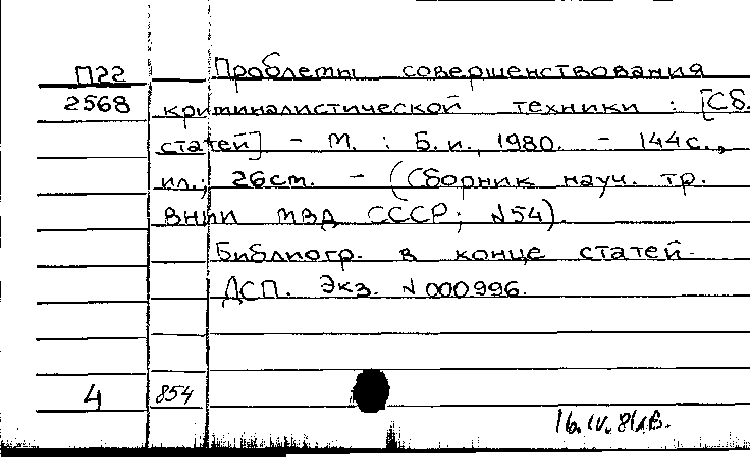 П22 Проблемы совершенствования
2568 криминалистической техники : [Сб.
статей] - М. : Б.и., 1980. - 144с.,
ил.; 26cm. - (Сборник науч. тр.
ВНИИ МВД СССР; №54).
Библиогр. в конце статей.
ДСП. Экз. №000996.
4 854
16.IV.81